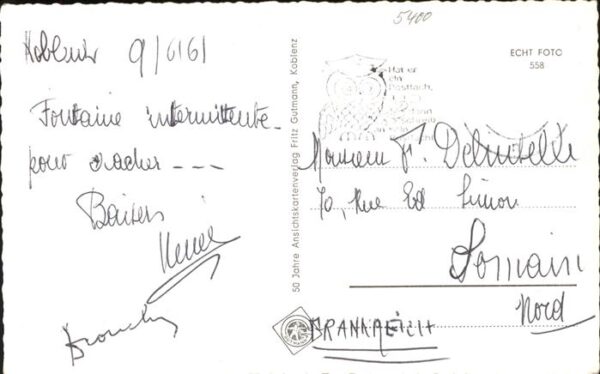 5400
Koblenz 9/6/61
Fontaine intermittente
pour cracher ---
Baisers
50 Jahre Ansichtskartenverlag Fritz Gutmann, Koblenz
ECHT FOTO
558
Hat er
ein
Postfach,
Monsieur F. Delmotte
70, Rue Ed Simon
Somain
Nord
FRANKREICH